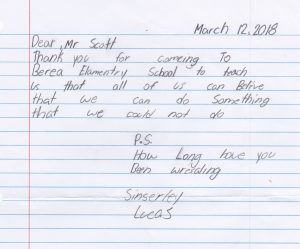 March 12, 2018
Dear, Mr Scott
Thank you for comeing To
Berea Elamentry School to teach
us that all of us can Belive
that we can do Something
that we could not do
P.S.
How Long have you
Been wreiding
Sinserley
Lucas